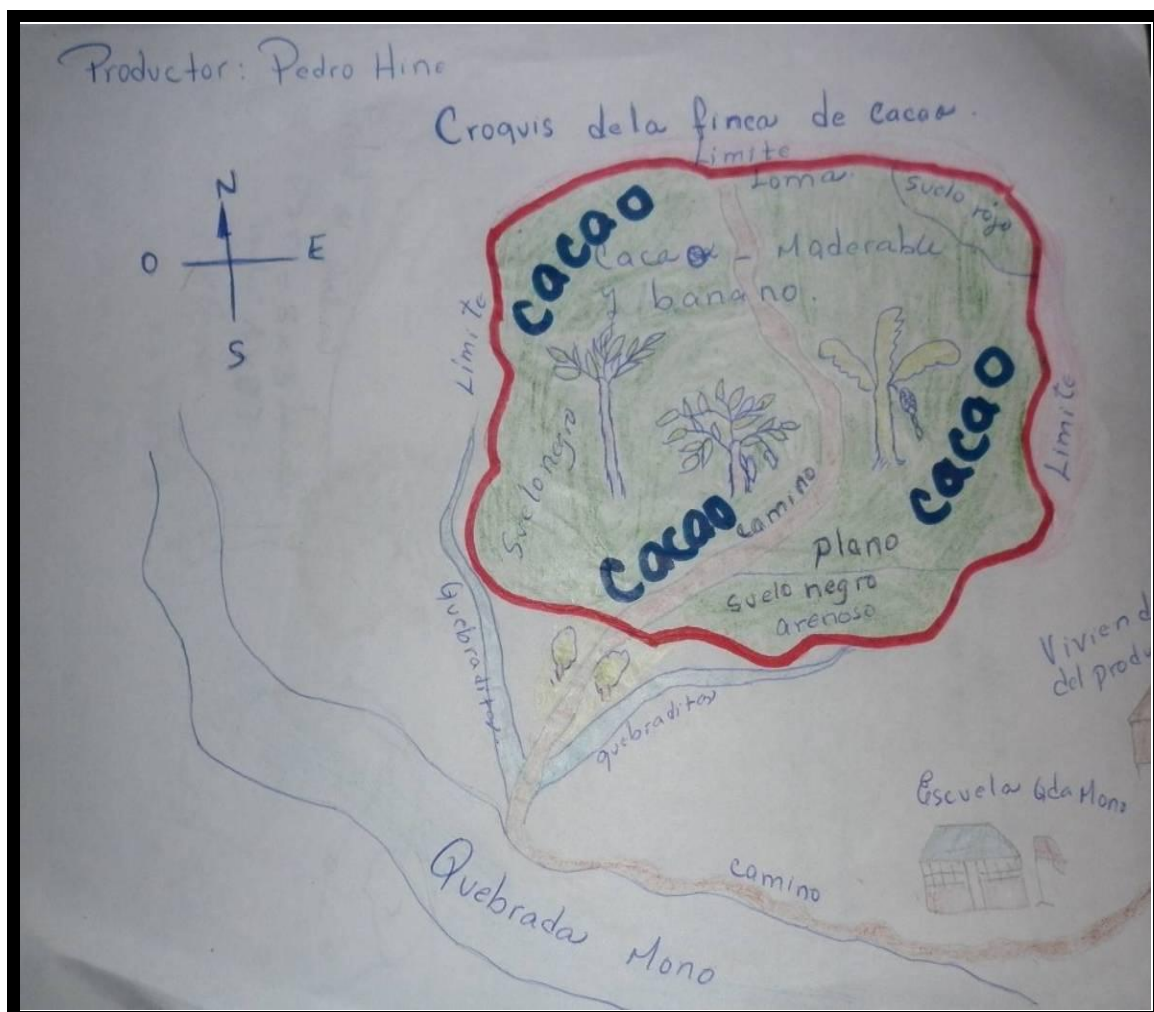 Productor: Pedro Hine
Croquis dela finca de cacao.
N
O
E
S
Limite
Loma.
Suelo rojo
cacao
Cacao - Maderable
y banano.
Limite
Limite
Suelo negro
cacao
cacao
camino
plano
suelo negro
arenoso
Quebraditas
quebraditas
Vivien
del produ
Escuela Qda Mono
camino
Quebrada Mono